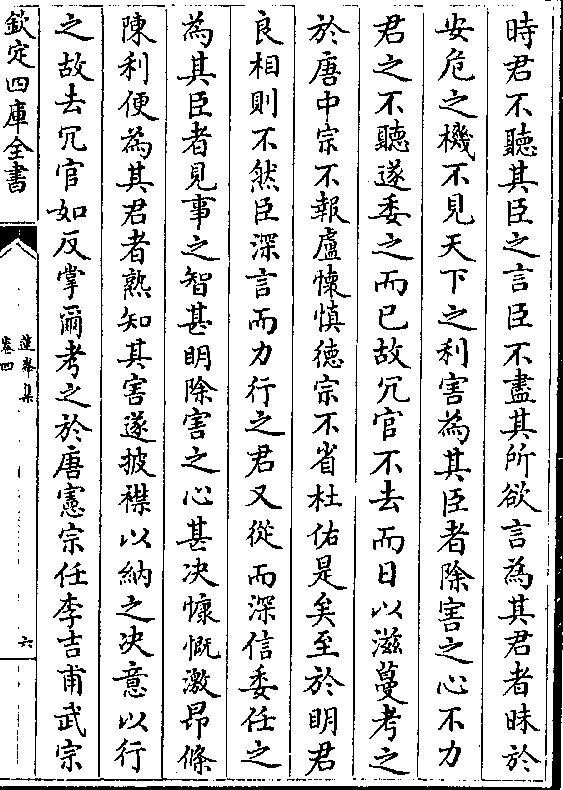 時君不聽其臣之言臣不盡其所欲言為其君者昧於
安危之機不見天下之利害為其臣者除害之心不力
君之不聽遂委之而已故冗官不去而日以滋蔓考之
於唐中宗不報盧懷慎德宗不省杜佑是矣至於明君
良相則不然臣深言而力行之君又從而深信委任之
為其臣者見事之智甚明除害之心甚决慷慨激昂條
陳利便為其君者熟知其害遂披襟以納之决意以行
之故去冗官如反掌爾考之於唐憲宗任李吉甫武宗
欽定四庫全書
蓮峯集
卷四
六